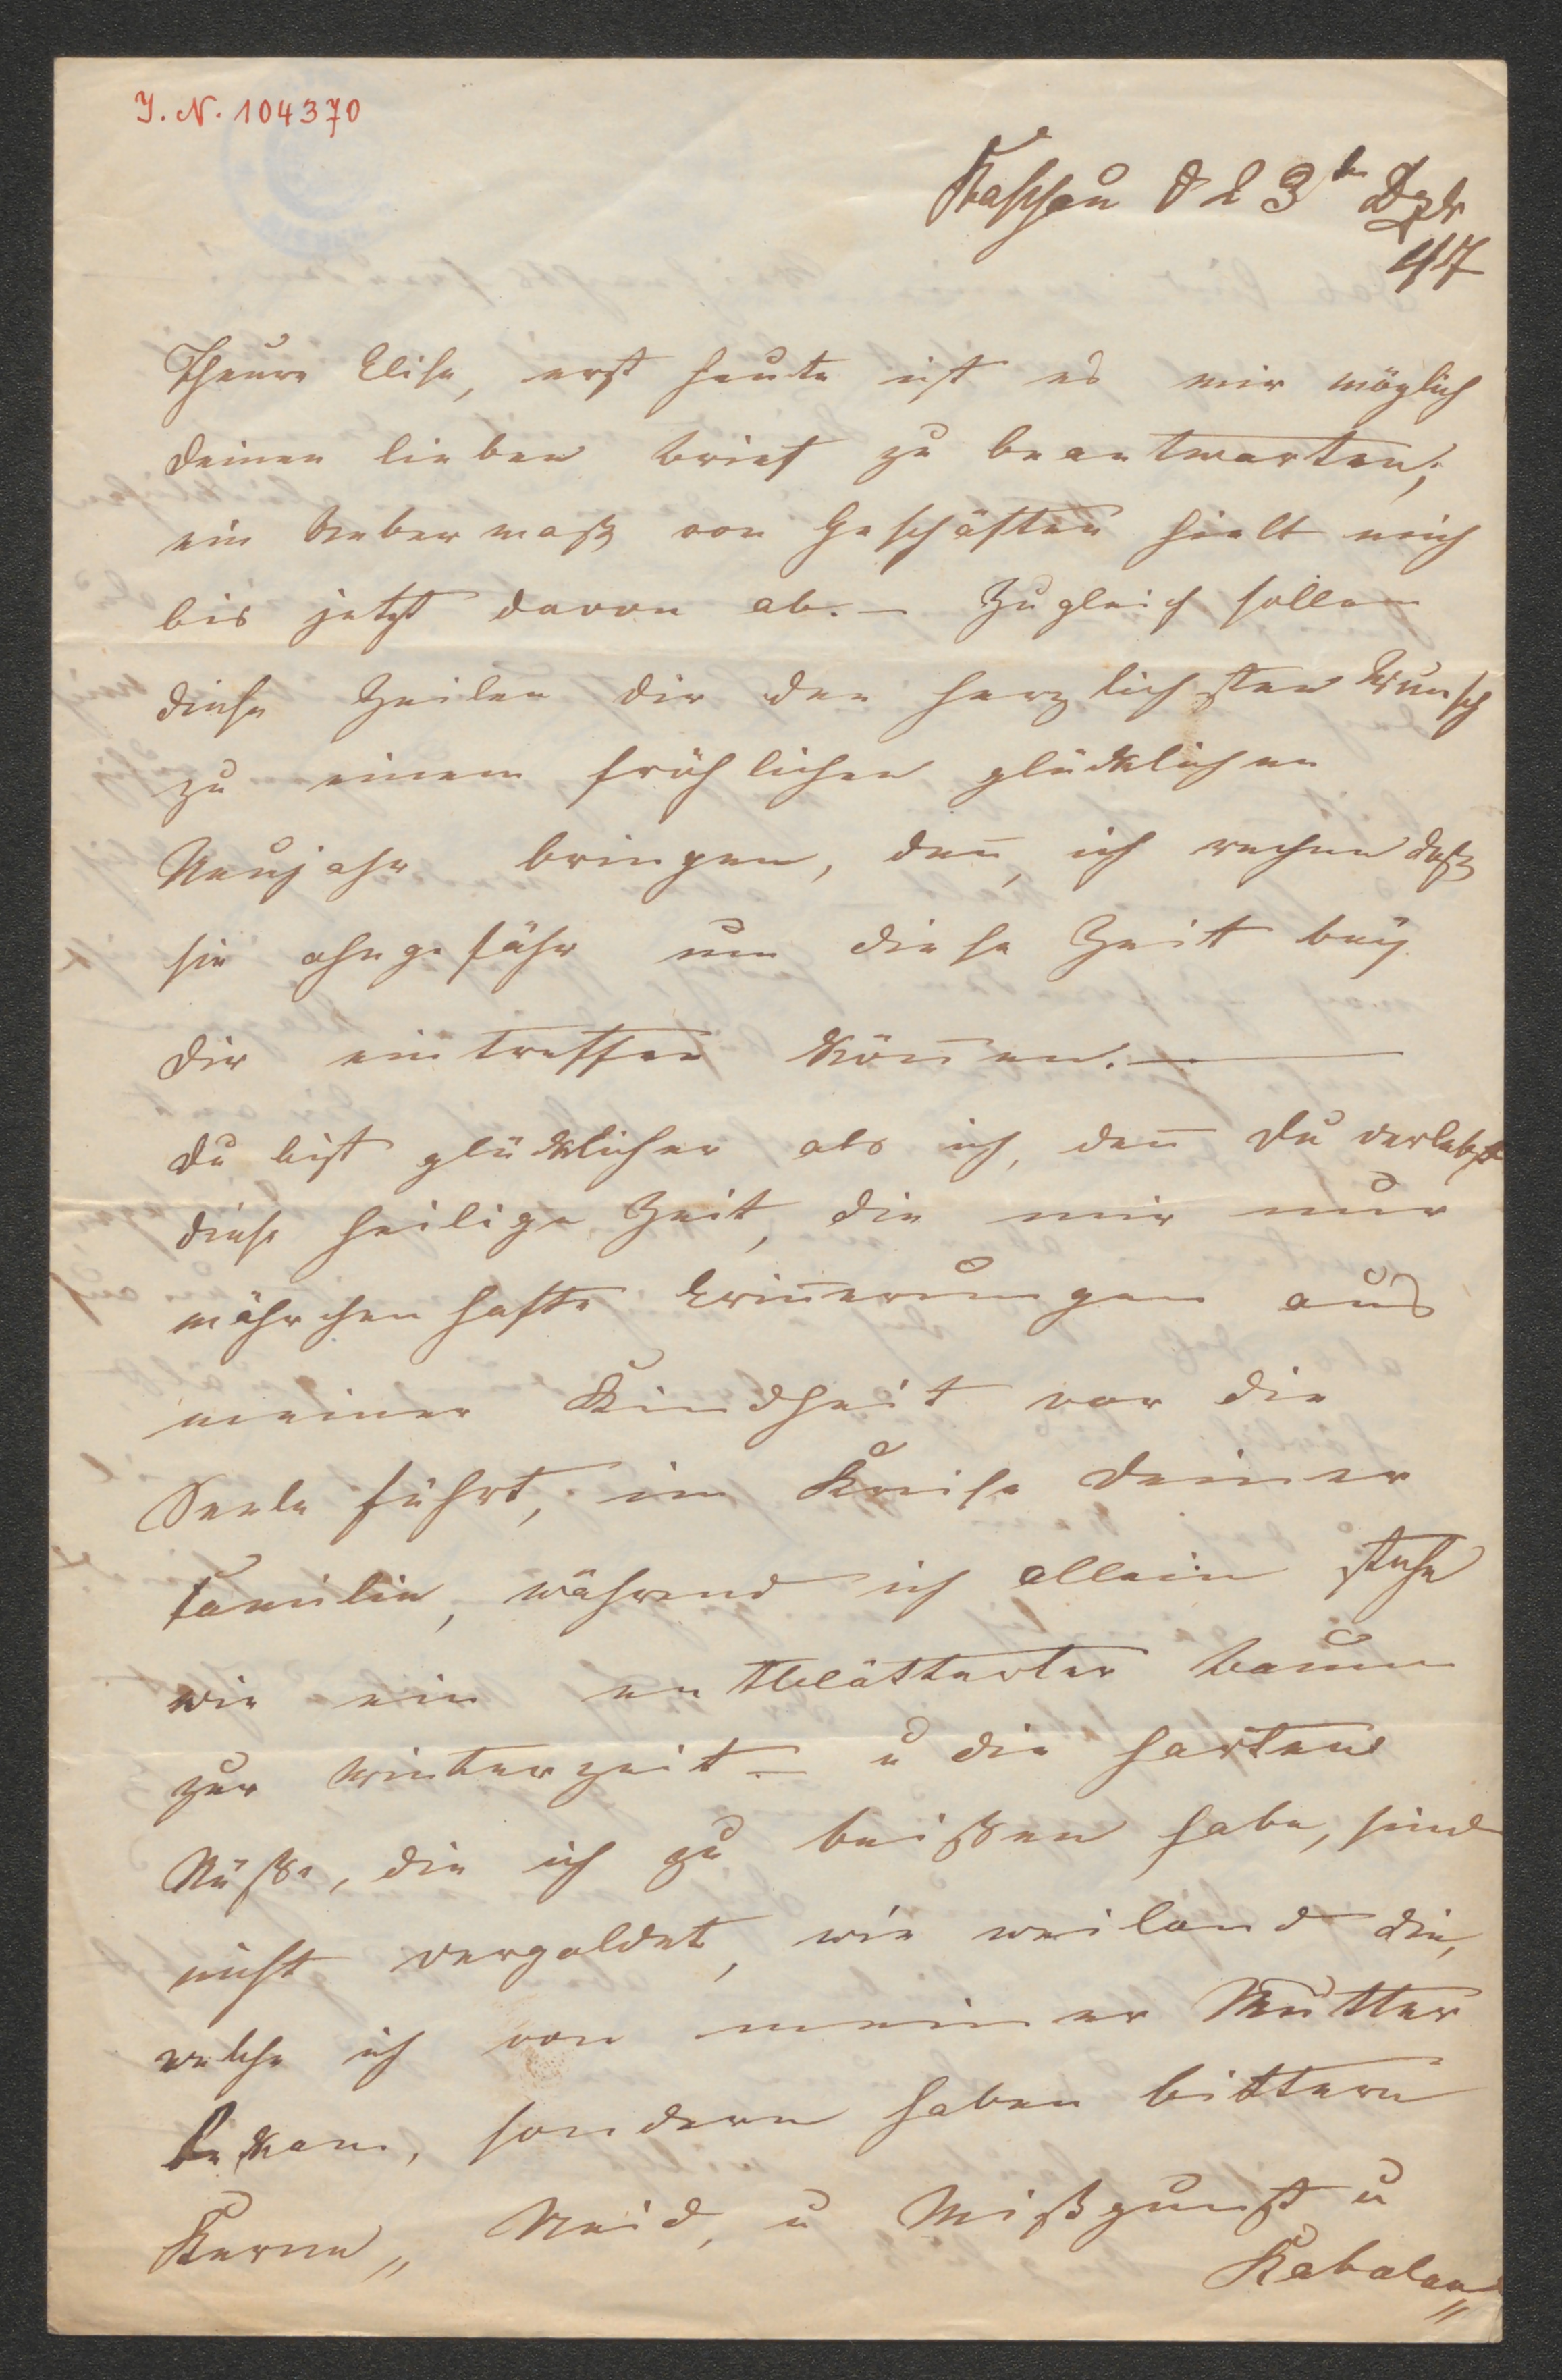 J. N. 104370
Kaschau d 23t Dzbr
47
Theure Elise, erst heute ist es mir möglich
deinen lieben Brief zu beantworten;
ein Uebermaß von Geschäften hielt mich
bis jetzt davon ab. – Zugleich sollen
diese Zeilen dir den herzlichsten Wunsch
zu einem fröhlichen glücklichen
Neujahr bringen, den̄ ich rechne daß
sie ohngefähr um diese Zeit bey
dir eintreffen kön̄en. –
Du bist glücklicher als ich, den̄ du verlebst
diese heilige Zeit, die mir nur
mährchenhafte Erin̄erungen aus
meiner Kindheit vor die
Seele führt, im Kreise deiner
Familie, während ich allein stehe
wie ein entblätterter Baum
zur Winterzeit – u die harten
Nüße, die ich zu beißen habe, sind
nicht vergoldet, wie weiland die,
welche ich von meiner Mutter
bekam, sondern haben bittern
Kerne „ Neid, u Mißgunst u
Kabalen „